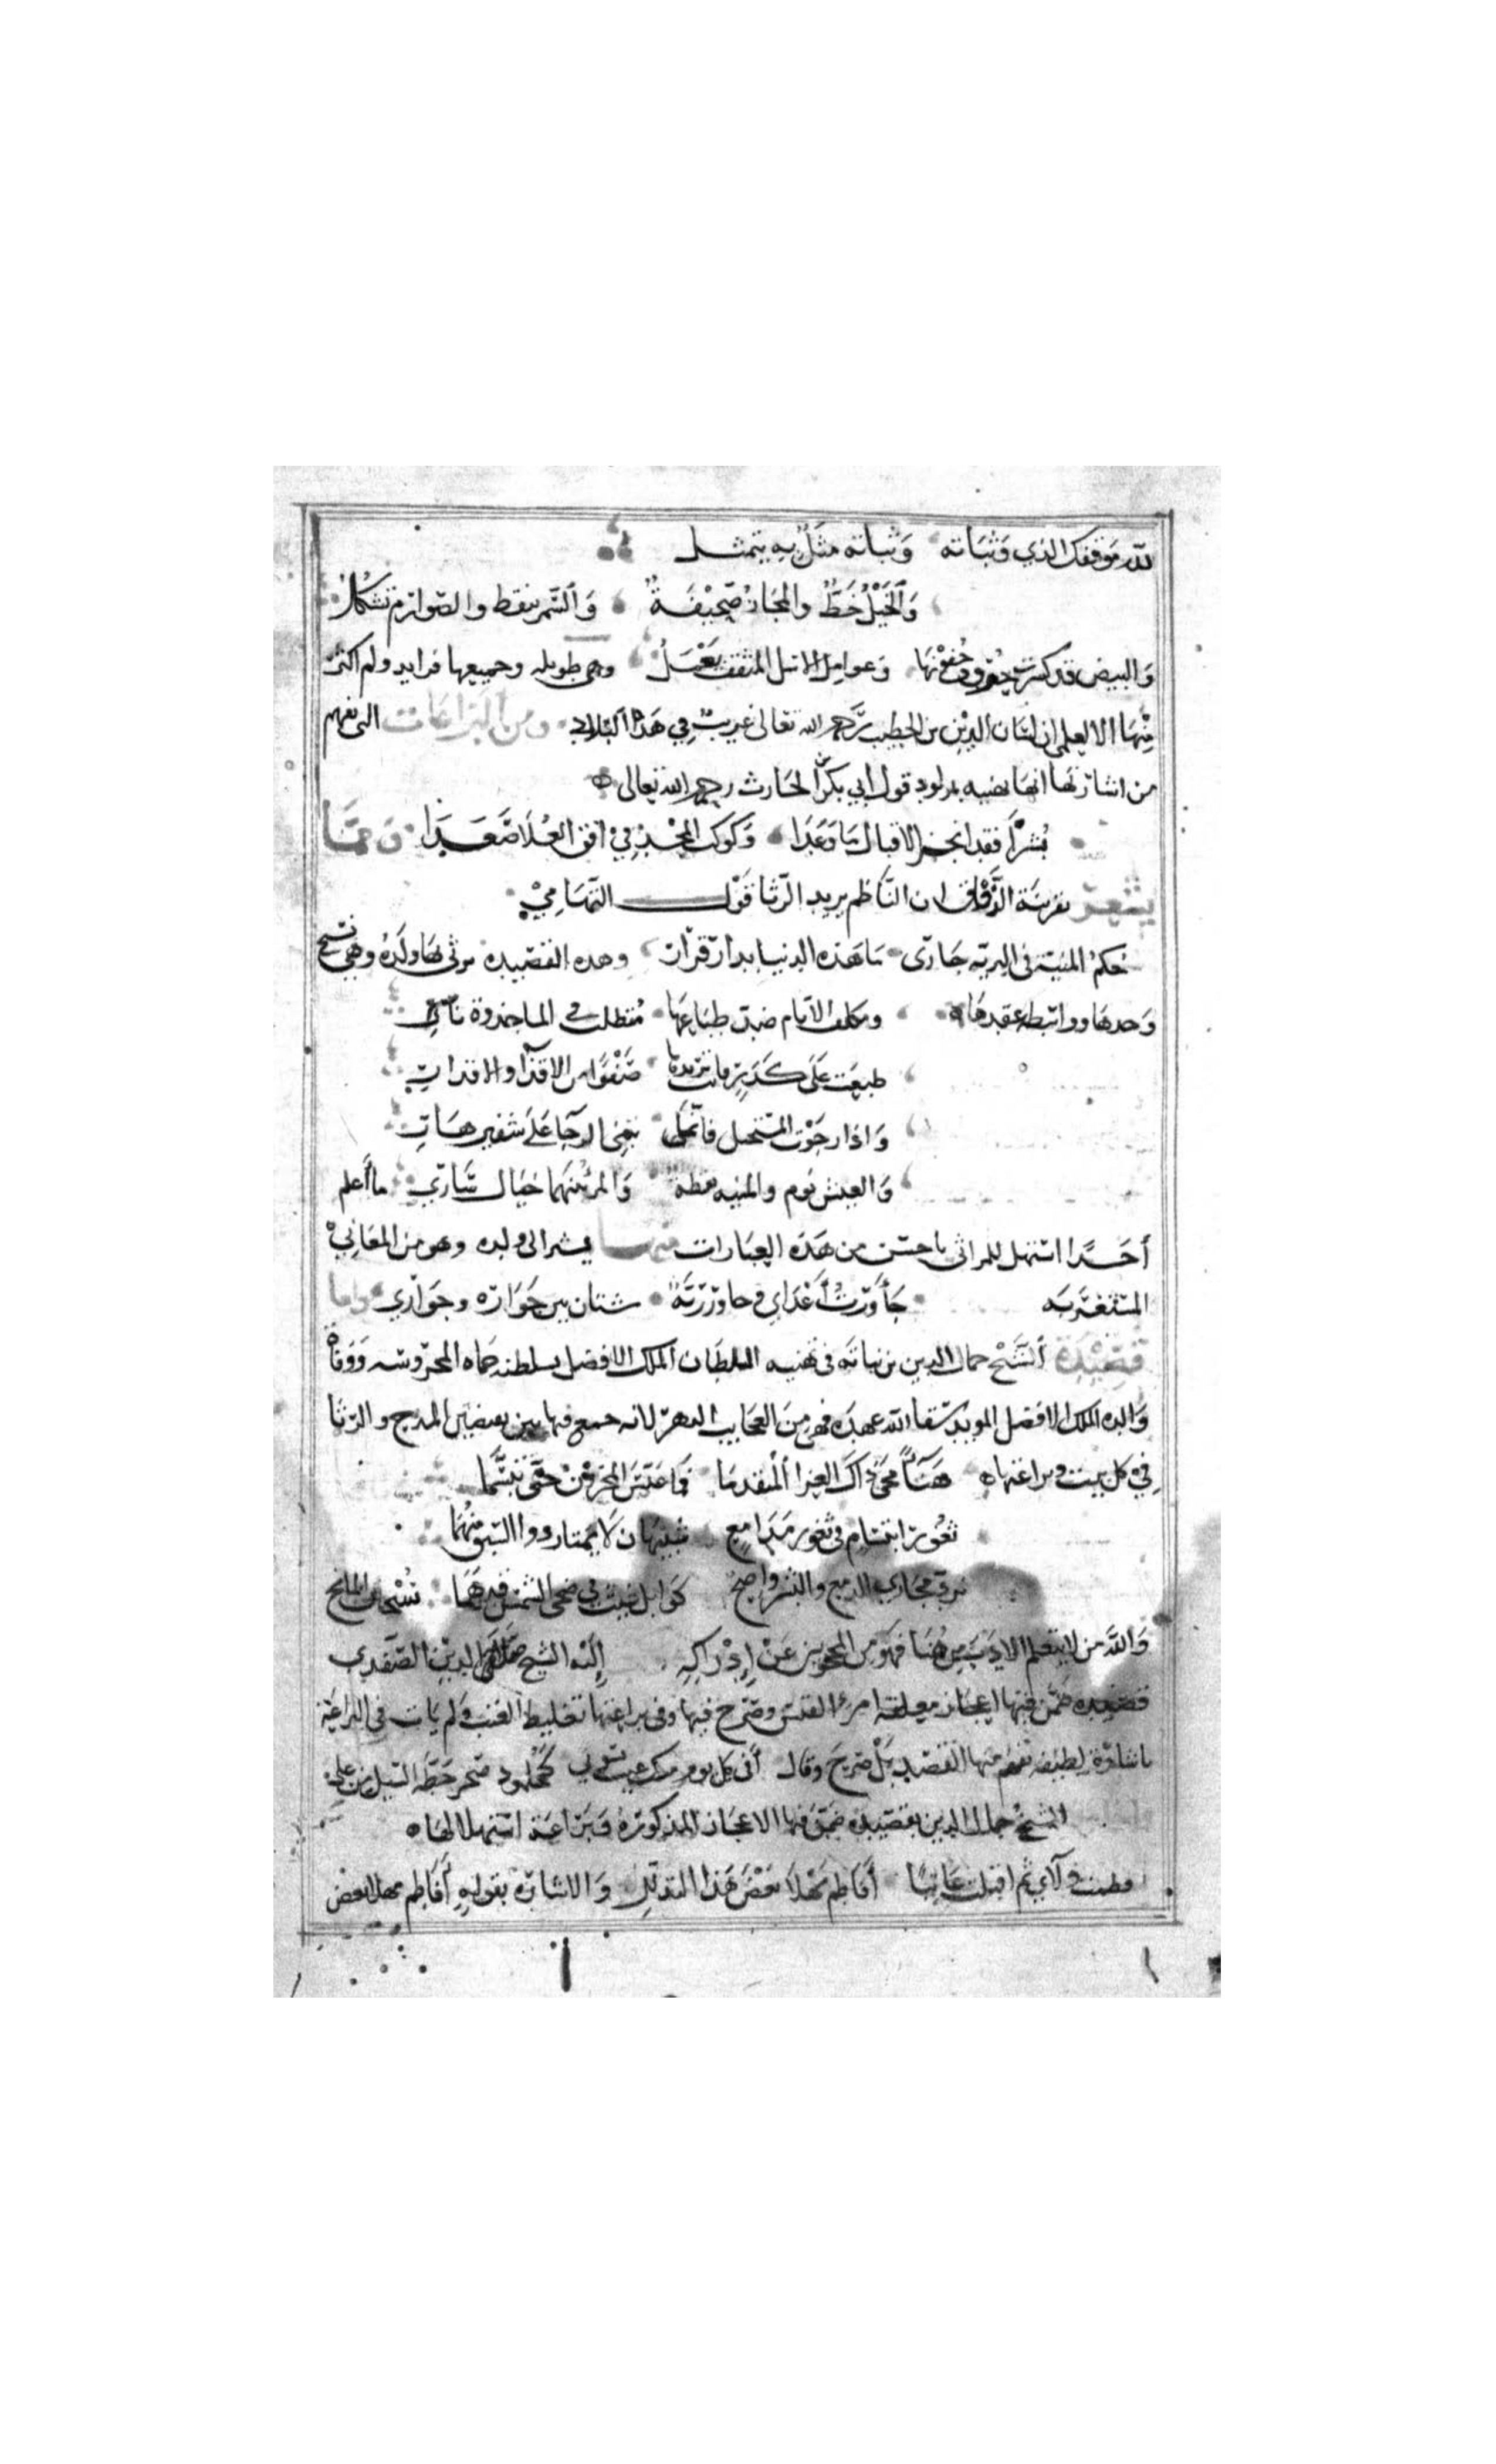 لله موقفك الذي وثباته وثباته مثل به يتمثل
والخيل خط والمجال صحيفة والسمر تنقط والصوارم تشكل
والبيض قد كسرت جفونها وعوامل الاسل المثقف يعسل وهي طويله وجميعها فرايد ولم اكثر
منها الا ليعلم ان لسان الدين بن الخطيب رحمه الله تعالى غريب في هذه البلاد ومن البراعات التي يفهم
من اشارتها انها تهنيه بمولود قول ابي بكر الحارث رحمه الله تعالى
بشرا فقد انجز الاقبال ما وعدا وكوكب المجد في افق العلا صعدا ومما
يشعر بقرينة الذوق ان الناظم يريد الرثا قول التهامي
حكم المنية في البرية جاري ما هذه الدنيا بدار قرار وهذه القصيدة يرثي بها ولده وهي نسيج
وحدها وواسطة عقدها ومكلف الايام ضد طباعها متطلب في الما جذوة نار
طبعت على كدر وانت تريدها صفوا من الاقذا والاقدار
واذا رجوت المستحيل فانما تبني الرجا على شفير هار
والعيش نوم والمنية يقظة والمر بينهما خيال ساري ما اعلم
احدا استهل للمراثي باحسن من هذه العبارات منها يشير الى ولده وهو من المعاني
المستغربه جاورت اعداي وجاور ربه شتان بين جواره وجواري واما
قصيدة الشيخ جمال الدين بن نباته في تهنيه السلطان الملك الافضل بسلطنة حماه المحروسه ووفاة
والده الملك الافضل المويد سقا الله عهده فهي من العجايب الدهر لانه جمع فيها بين نقيضين المدح والرثا
في كل بيت وبراعتها هناء محى ذاك العزا المقدما فما عبس المحزون حتى تبسما
ثغور ابتسام في ثغور مدامع شبيهان لا يمتاز ذو السبق منهما
نرد مجاري الدمع والبشر واضح كوابل غيث في ضحى الشمس قد هما سبحان المانح
والله من لا يتعلم الادب من هنا فهو من المحجوبين عن ادراكه الشيخ صلاح الدين الصفدي
قصيدة ضمن فيها اعجاز معلقة امرء القيس وصرح فيها وفي براعتها تغليظ العتب ولم يات في البراعة
باشارة لطيفه يفهم منها القصد بل صرح وقال أفي كل يوم منك عتب يسوني كجلمود صخر حطه السيل من علي
الشيخ جمال الدين بقصيدة ضمن فيها الاعجاز المذكورة وبراعة استهلالها
فطمت ولاي ثم اقبلت عاتبا أفاطم مهلا بعض هذا التدلل والاشارة بقوله أفاطم مهلا بعض